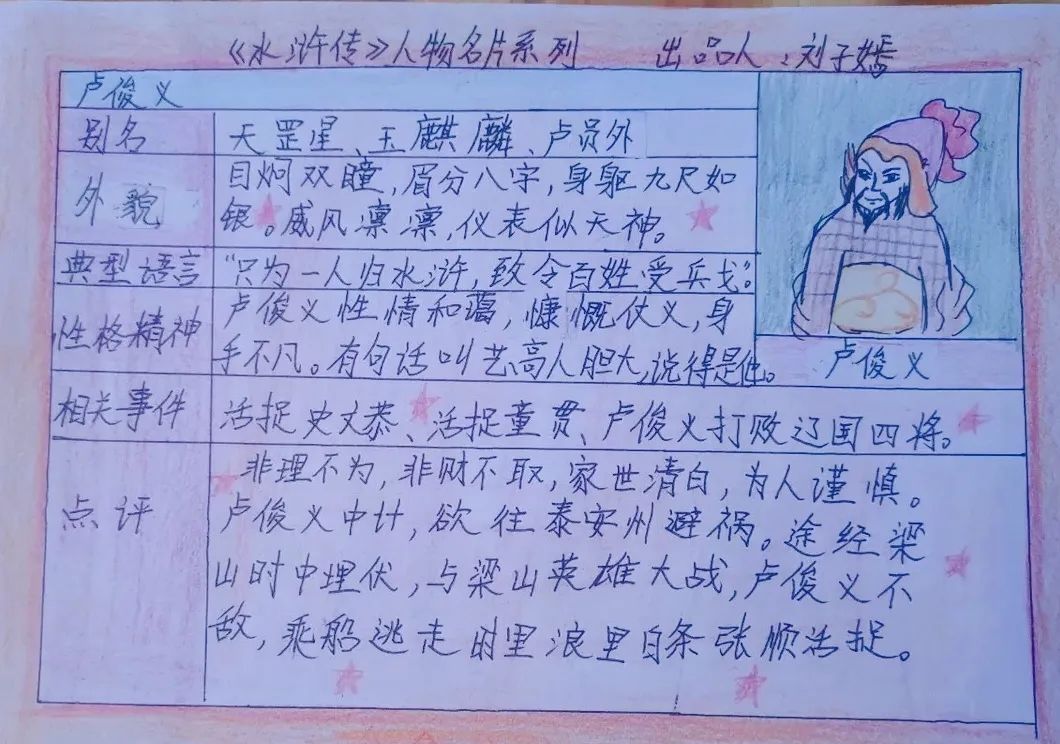 《水浒传》人物名片系列 出品人：刘子嫣
卢俊义
别名 天罡星、玉麒麟、卢员外
外貌 目炯双瞳，眉分八字，身躯九尺如
银。威风凛凛，仪表似天神。
典型语言 “只为一人归水浒，致令百姓受兵戈”。
性格精神 卢俊义性情和蔼，慷慨仗义，身
手不凡。有句话叫艺高人胆大，说得是他。
卢俊义
相关事件 活捉史文恭、活捉童贯、卢俊义打败辽国四将。
点评 非理不为，非财不取，家世清白，为人谨慎。
卢俊义中计，欲往泰安州避祸。途经梁
山时中埋伏，与梁山英雄大战，卢俊义不
敌，乘船逃走时里浪里白条张顺活捉。